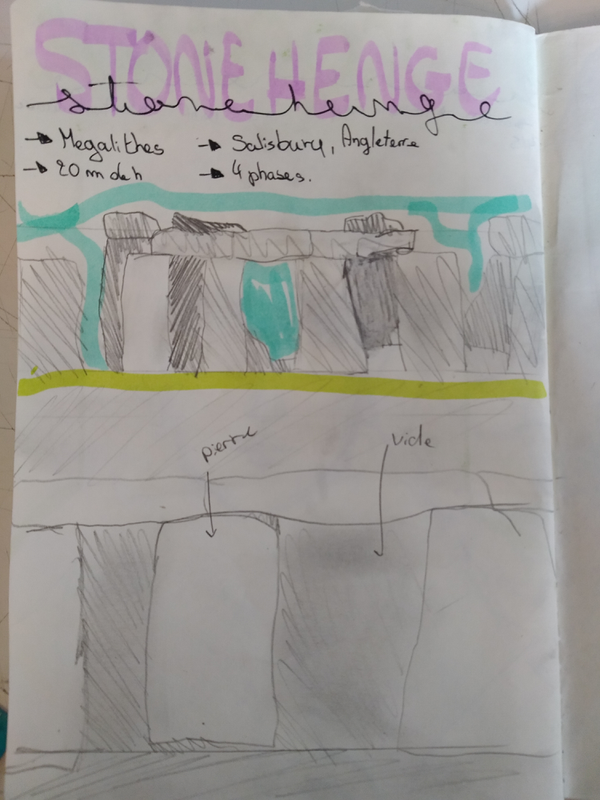 STONE HENGE
stone henge
→ Megalithes → Salisbury, Angleterre
→ 20 m de h → 4 phases.
pierre
vide